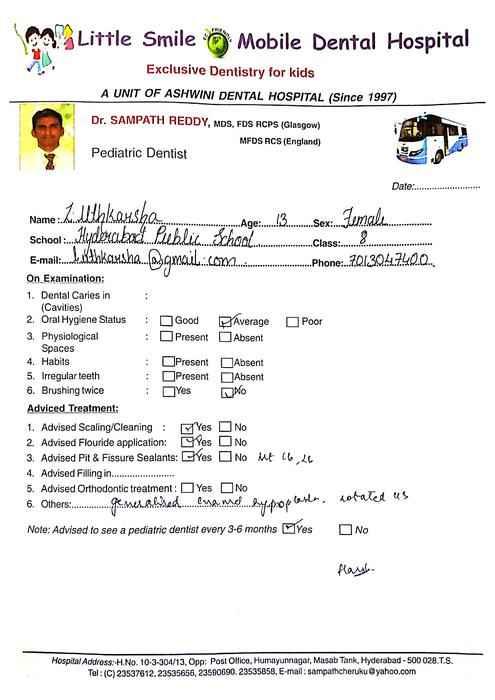 Little Smile Mobile Dental Hospital
Exclusive Dentistry for kids
A UNIT OF ASHWINI DENTAL HOSPITAL (Since 1997)
Dr. SAMPATH REDDY, MDS, FDS RCPS (Glasgow)
MFDS RCS (England)
Pediatric Dentist
Date:
Name: Z. Uthkarsha Age: 13 Sex: Female
School: Hyderabad Public School Class: 8
E-mail: @gmail.com Phone: 7013047400
On Examination:
1. Dental Caries in :
(Cavities)
2. Oral Hygiene Status : Good Average Poor
3. Physiological : Present Absent
Spaces
4. Habits : Present Absent
5. Irregular teeth : Present Absent
6. Brushing twice : Yes No
Adviced Treatment:
1. Advised Scaling/Cleaning : Yes No
2. Advised Flouride application: Yes No
3. Advised Pit & Fissure Sealants: Yes No 16, 26
4. Advised Filling in
5. Advised Orthodontic treatment : Yes No
6. Others: generalised enamel hypoplasia. rotated
Note: Advised to see a pediatric dentist every 3-6 months Yes No
Hospital Address:-H.No. 10-3-304/13, Opp: Post Office, Humayunnagar, Masab Tank, Hyderabad - 500 028.T.S.
Tel : (C) 23537612, 23535656, 23590690. 23535858, E-mail : sampathcheruku@yahoo.com